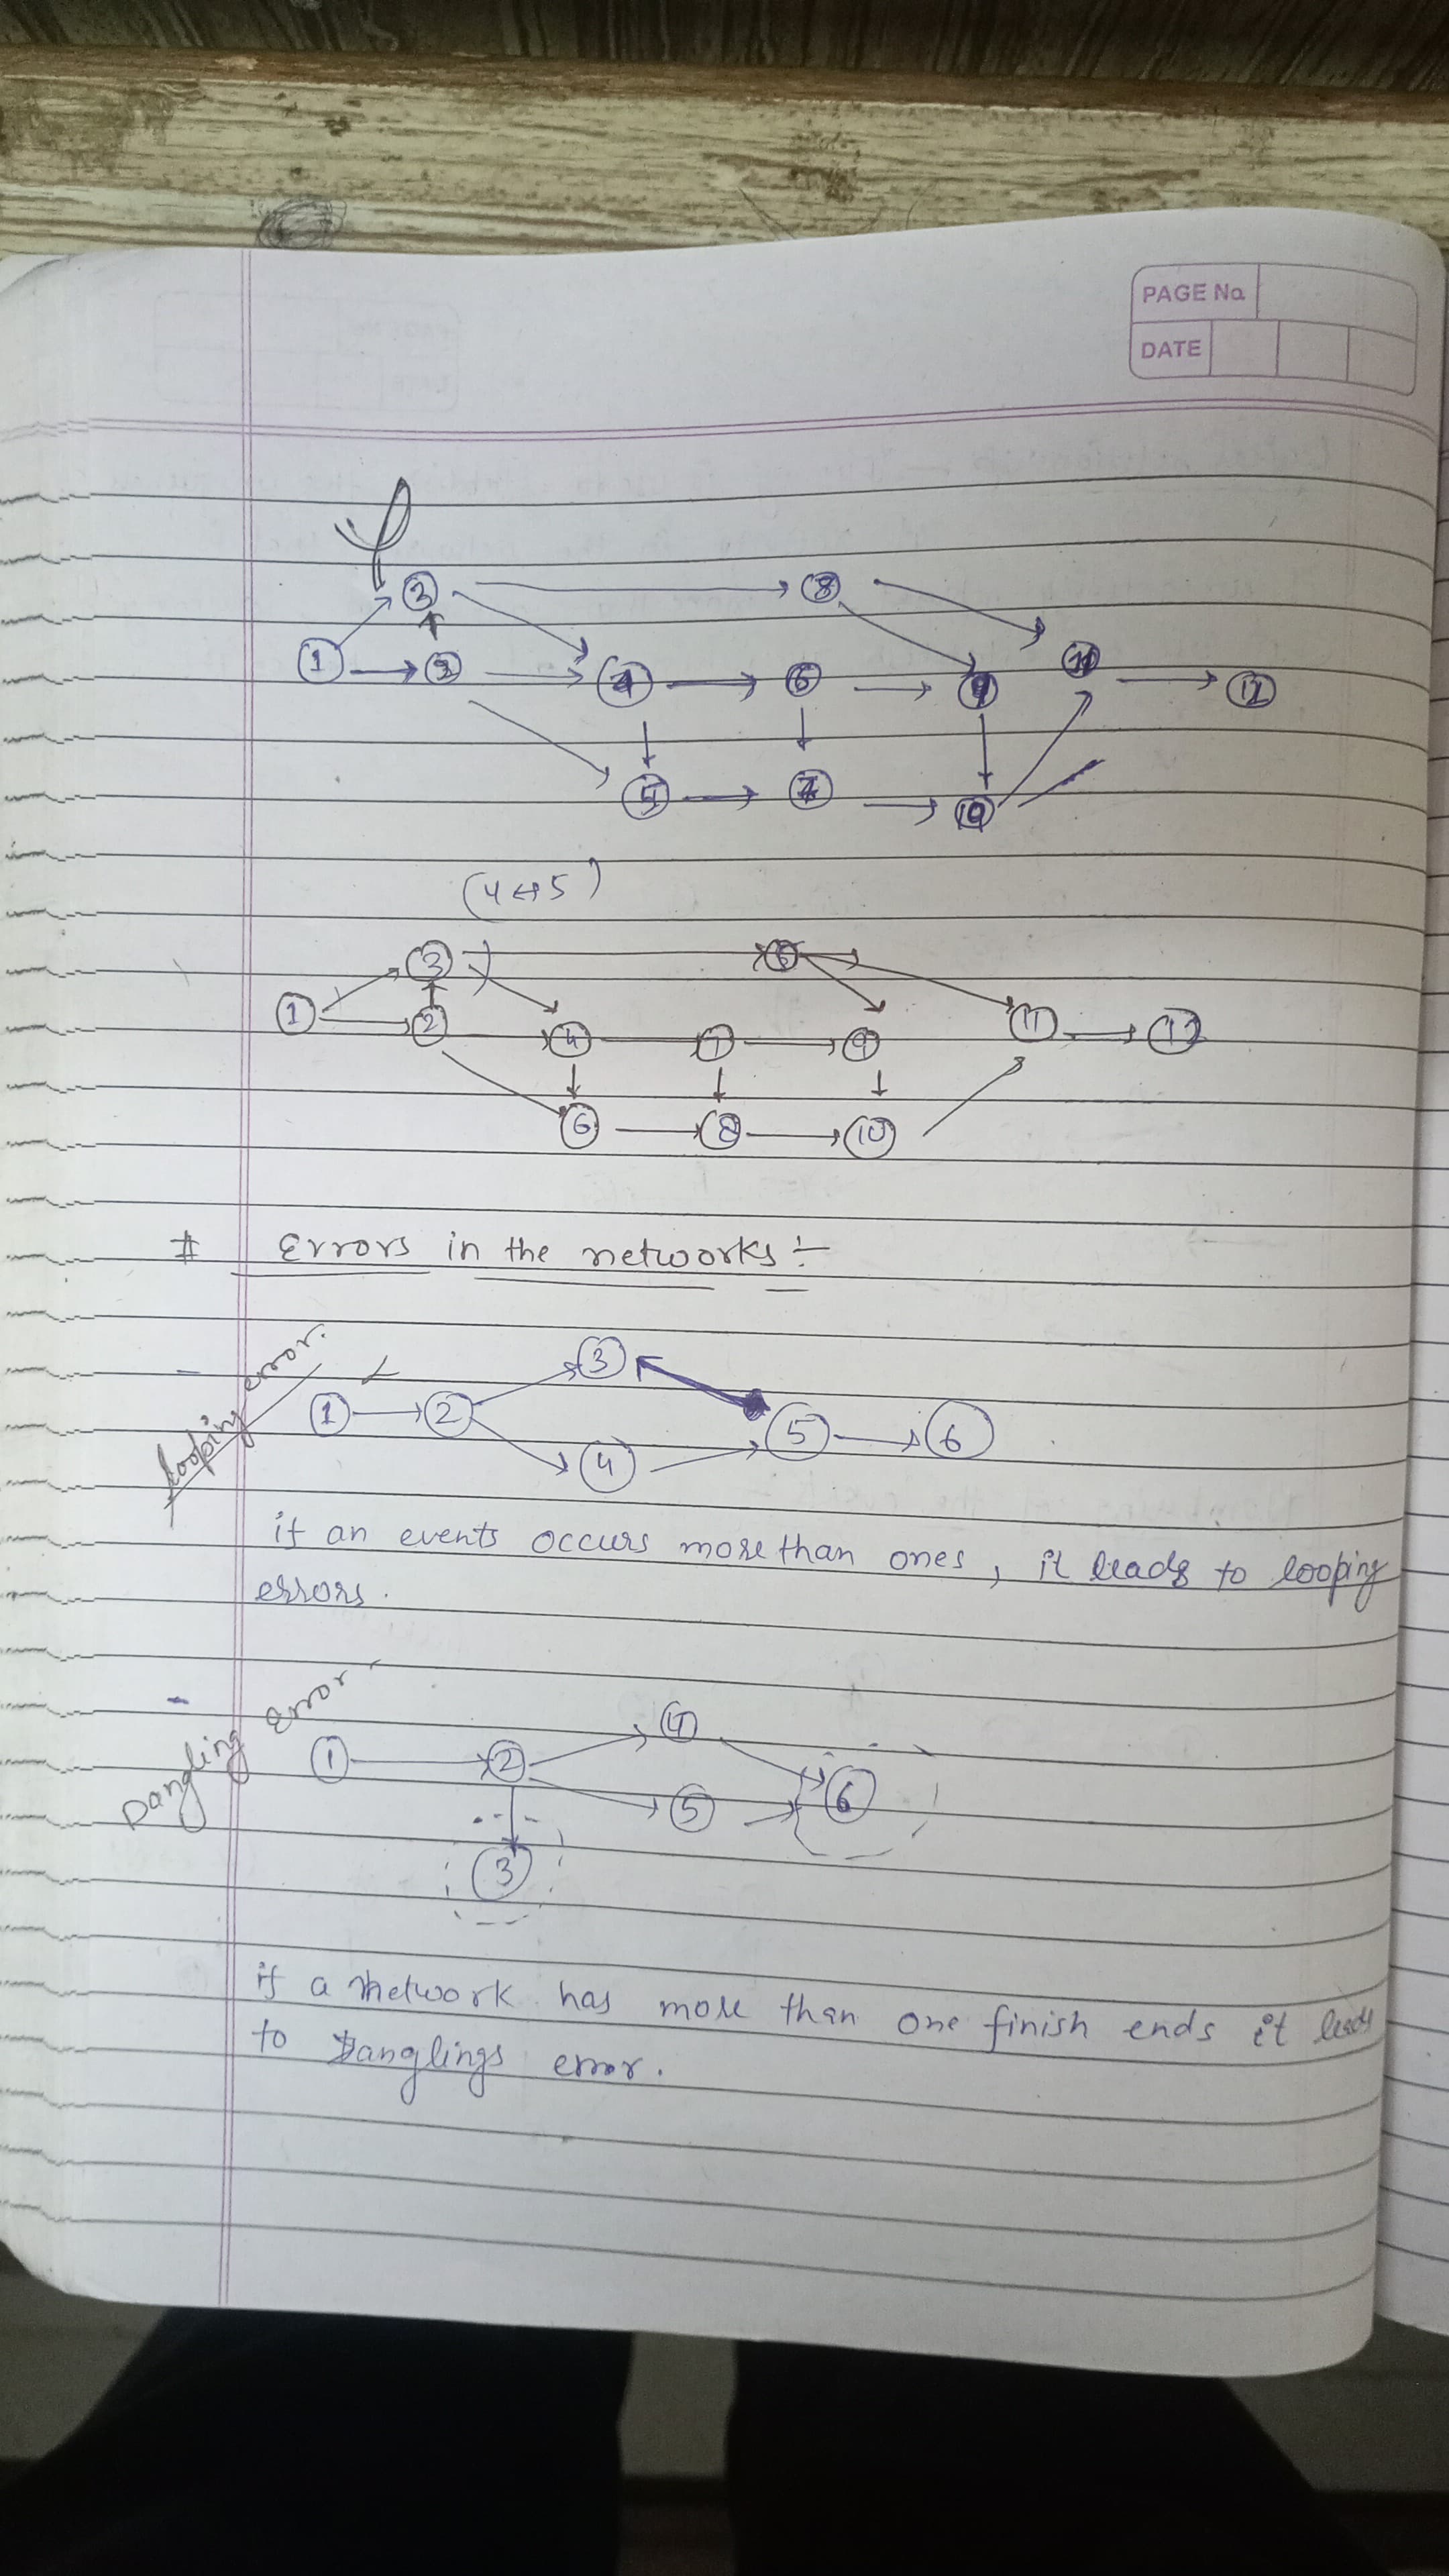 PAGE No.
DATE
3 8
1 2 4 6 9 11 12
5 7 10
(4↔5)
3 5
1 2 4 7 9 11 12
6 8 10
# Errors in the networks :-
- looping error.
3
1 2 5 6
4
if an events occurs more than ones, it leads to looping
errors.
- Dangling Error
4
1 2 6
5
3
if a network has more than one finish ends it leads
to Danglings error.